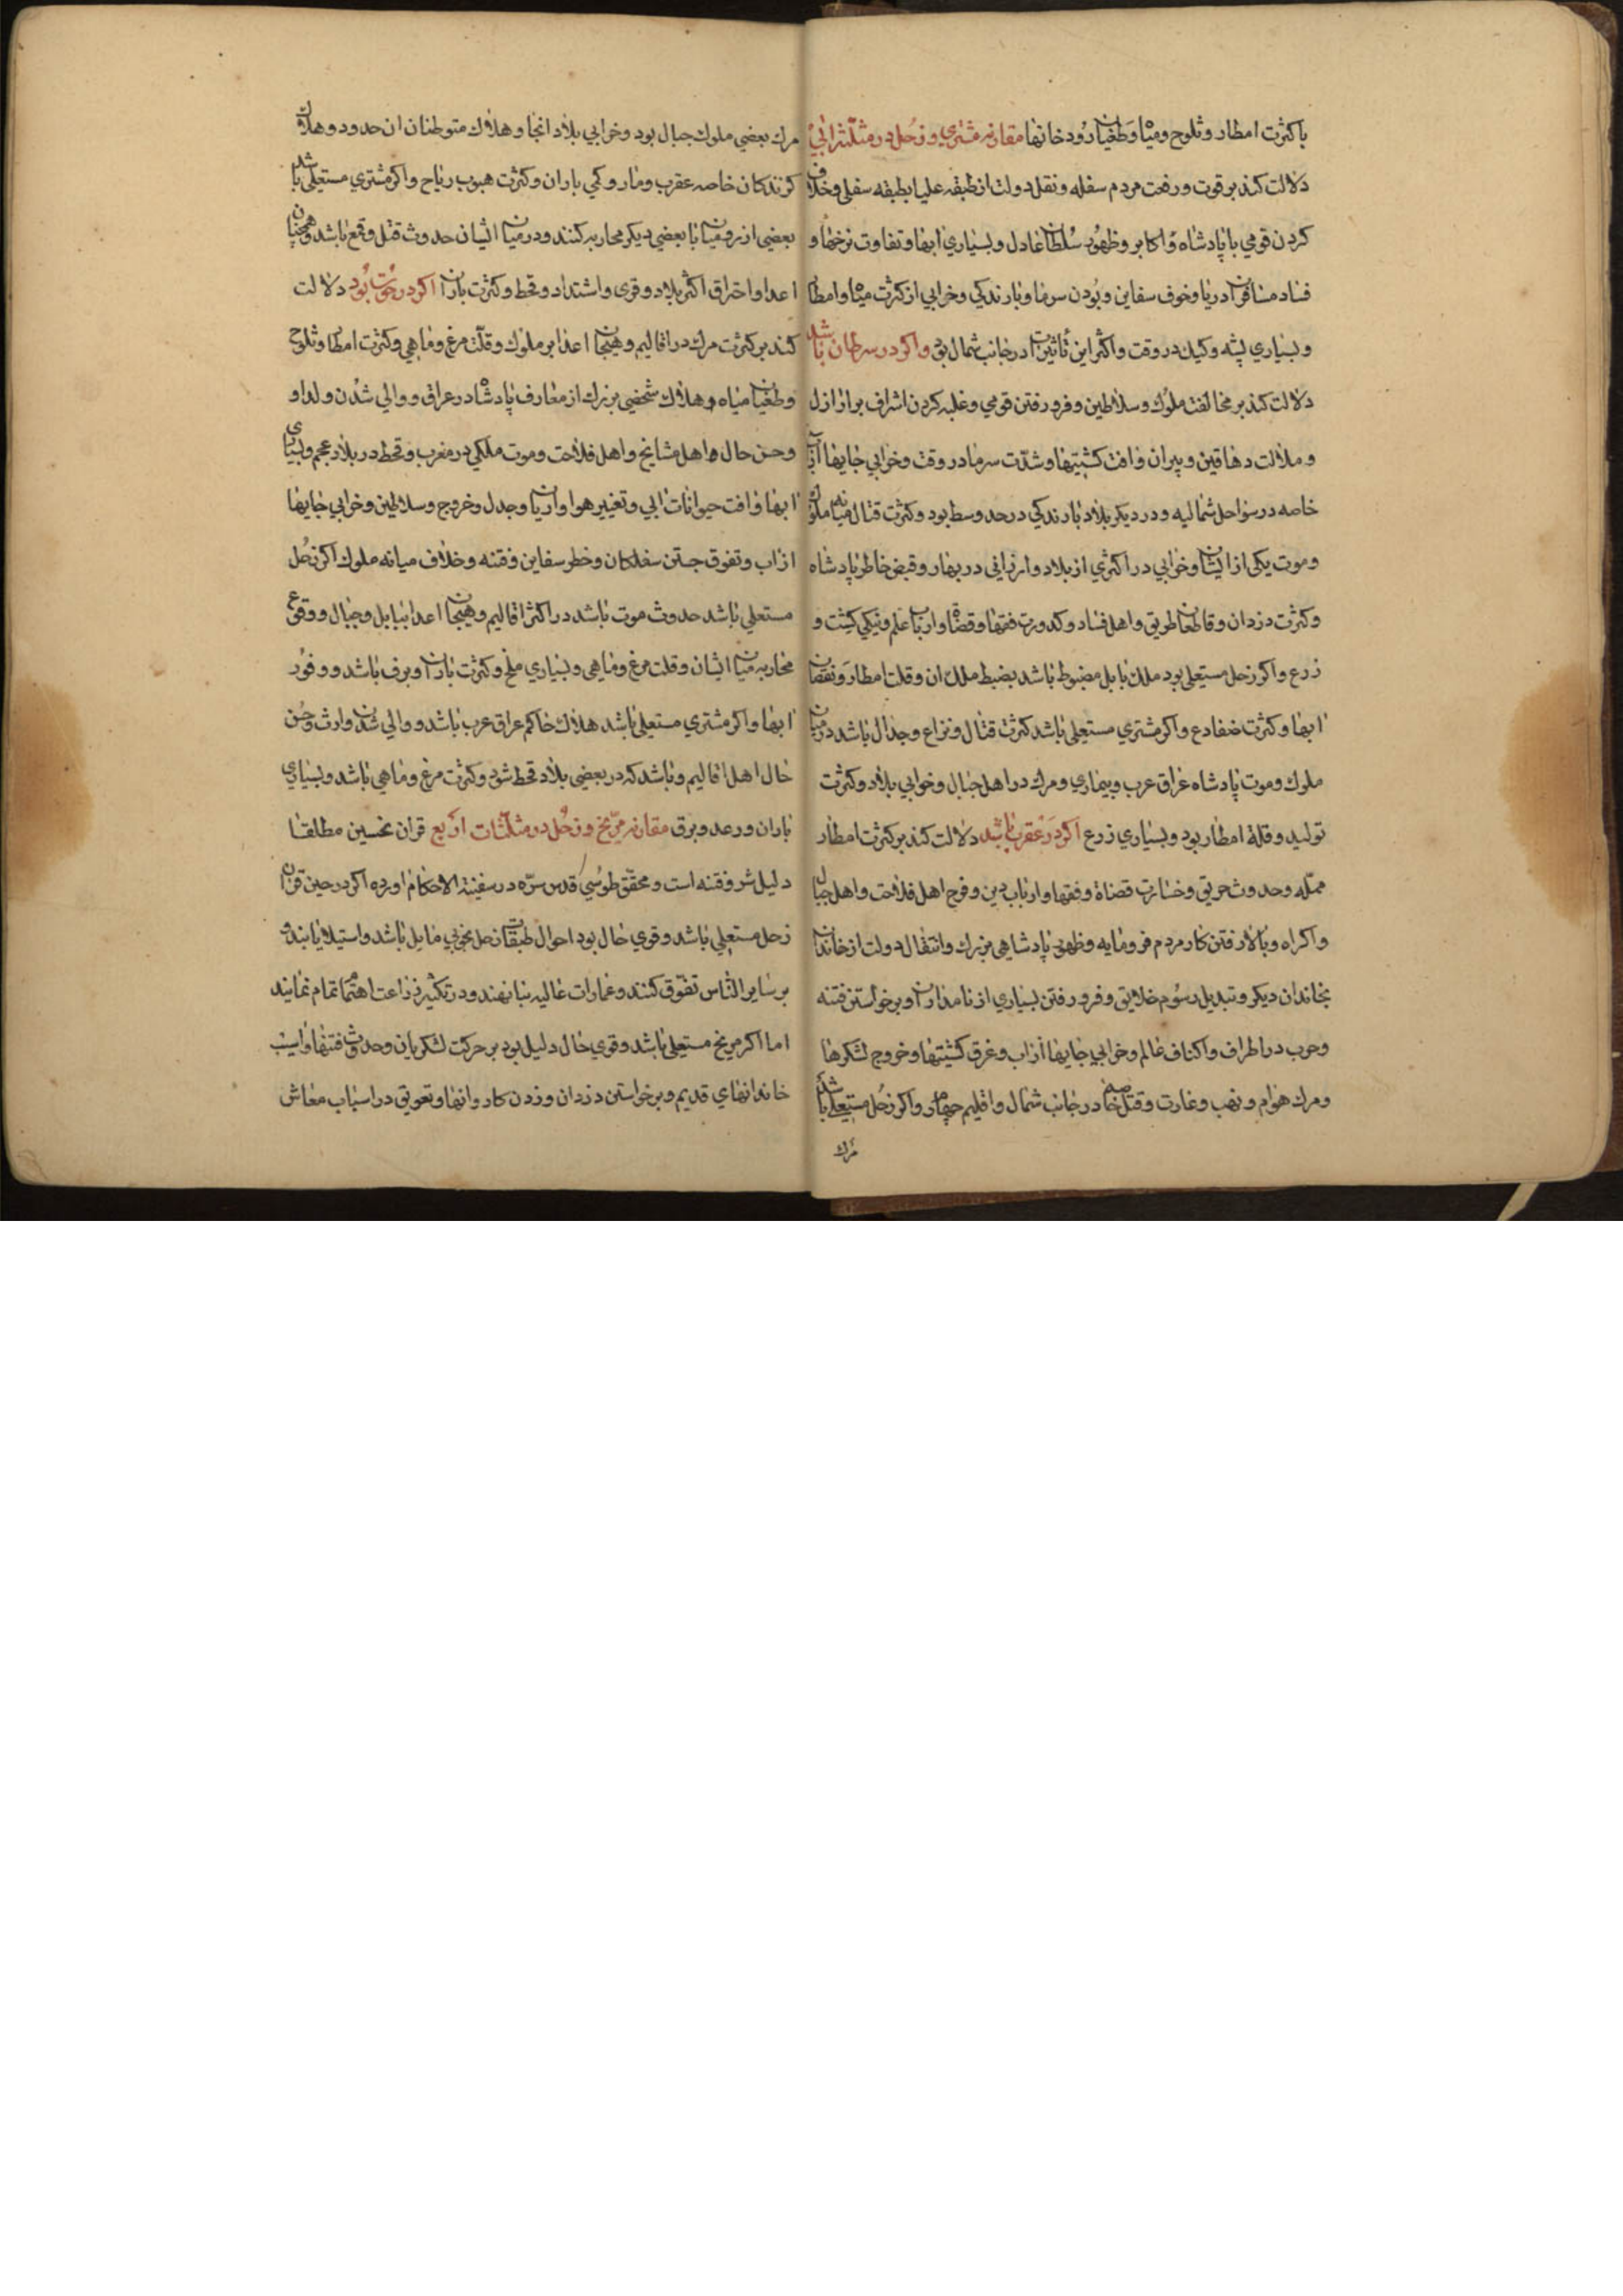 باكثرت امطار و ثلوج و مياه و طغيان رودخانها مقارنه مشتري و زحل در مثلثه ابي
دلالت كند بر قوت و رفعت مردم سفله و نقل دولت از طبقه عليا بطبقه سفلي و خلاف
كردن قومي با پادشاه و اكابر و ظهور سلطان عادل و بسياري ابها و تفاوت نرخها و
فساد مسافران دريا و خوف سفاين و بودن سرما و بارندكي و خرابي از كثرت مياه و امطار
و بسياري پشه و كيك در وقت و اكثر اين تأثيرات در جانب شمال بود و اكر در سرطان باشد
دلالت كند بر مخالفت ملوك و سلاطين و فرو رفتن قومي و غلبه كردن اشراف بر ارازل
و ملالت دهاقين و پيران و افت كشتيها و شدت سرما در وقت و خرابي جايها از آب
خاصه در سواحل شماليه و در ديكر بلاد بارندكي در حد وسط بود و كثرت قتال ميانه ملوك
و موت يكي از ايشان و خرابي در اكثري از بلاد و ارزاني در بهار و قبض خاطر پادشاه
و كثرت دزدان و قاطعان طريق و اهل فساد و كدورت فقها و قضاه و ارباب علم و نيكي كشت و
زرع و اكر زحل مستعلي بود ملك بابل مضبوط باشد بضبط ملك ان و قلت امطار و نقصان
ابها و كثرت ضفادع و اكر مشتري مستعلي باشد كثرت قتال و نزاع و جدال باشد در ميان
ملوك و موت پادشاه عراق عرب و بيماري و مرك در اهل جبال و خرابي بلاد و كثرت
توليد و قلة امطار بود و بسياري زرع اكر در عقرب باشد دلالت كند بر كثرت امطار
مهمله و حدوث حريق و خسارت قضاة و فقها و ارباب دين و فرح اهل فلاحت و اهل جبال
و اكراه و بالا رفتن كار مردم فرومايه و ظهور پادشاهي بزرك و انتقال دولت از خاندان
بخاندان ديكر و تبديل رسوم خلايق و فرو رفتن بسياري از نامداران و برخواستن فتنه
و حرب در اطراف و اكناف عالم و خرابي جايها از اب و غرق كشتيها و خروج لشكرها
و مرك هوام و نهب و غارت و قتل خاصه در جانب شمال و اقليم چهارم و اكر زحل مستعلي باشد
مرك
مرك بعضي ملوك جبال بود و خرابي بلاد انجا و هلاك متوطنان ان حدود و هلاك
كزندكان خاصه عقرب و مار و كمي باران و كثرت هبوب رياح و اكر مشتري مستعلي باشد
بعضي از روميان با بعضي ديكر محاربه كنند و در ميان ايشان حدوث قتل و قمع باشد و هيجان
اعدا و احتراق اكثر بلاد و قرى و اشتداد و قحط و كثرت باران اكر در حوت بود دلالت
كند بر كثرت مرك در اقاليم و هيجان اعدا بر ملوك و قلت مرغ و ماهي و كثرت امطار و ثلوج
و طغيان مياه و هلاك شخصي بزرك از معارف پادشاه در عراق و والي شدن ولد او
و حسن حال اهل مشايخ و اهل فلاحت و موت ملكي در مغرب و قحط در بلاد عجم و بسياري
ابها و افت حيوانات ابي و تغيير هوا و ارياح و جدل و خروج و سلاطين و خرابي جايها
از اب و تفوق جستن سفلكان و خطر سفاين و فتنه و خلاف ميانه ملوك اكر زحل
مستعلي باشد حدوث موت باشد در اكثر اقاليم و هيجان اعدا ببابل و جبال و وقوع
محاربه ميان ايشان و قلت مرغ و ماهي و بسياري ملخ و كثرت باران و برف باشد و وفور
ابها و اكر مشتري مستعلي باشد هلاك حاكم عراق عرب باشد و والي شدن وارث و حسن
حال اهل اقاليم و باشد كه در بعضي بلاد قحط شود و كثرت مرغ و ماهي باشد و بسياري
باران و رعد و برق مقارنه مريخ و زحل در مثلثات اربع قران نحسين مطلقا
دليل شر و فتنه است و محقق طوسي قدس سره در سفينة الاحكام اورده اكر در حين قران
زحل مستعلي باشد و قوي حال بود احوال طبقات زحل بخوبي مايل باشد و استيلا يابند و
بر ساير الناس تفوق كنند و عمارات عاليه بنا نهند و در تكثير زراعت اهتمام تمام نمايند
اما اكر مريخ مستعلي باشد و قوي حال دليل بود بر حركت لشكريان و حدوث فتنها و اسيب
خاندانهاي قديم و برخواستن دزدان و زدن كاروانها و تعويق در اسباب معاش